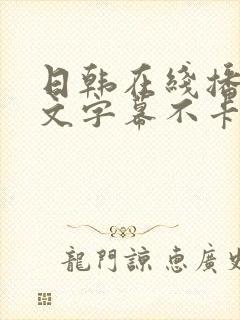 日韩在线播
文字幕不卡
龍門諒惠廣